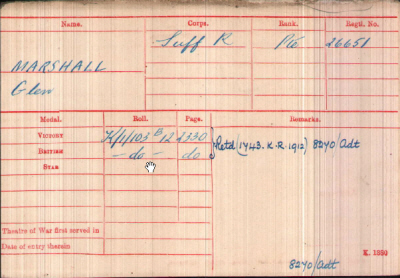 Name. Corps. Rank. Regtl. No.
MARSHALL Suff R Pte 26651
Glen
Medal. Roll. Page. Remarks.
VICTORY K/1/103 B12 2330 Retd (1743. K.R. 1912) 8270/Adt
BRITISH — do — do
STAR
Theatre of War first served in
Date of entry therein K. 1380
8270/Adt